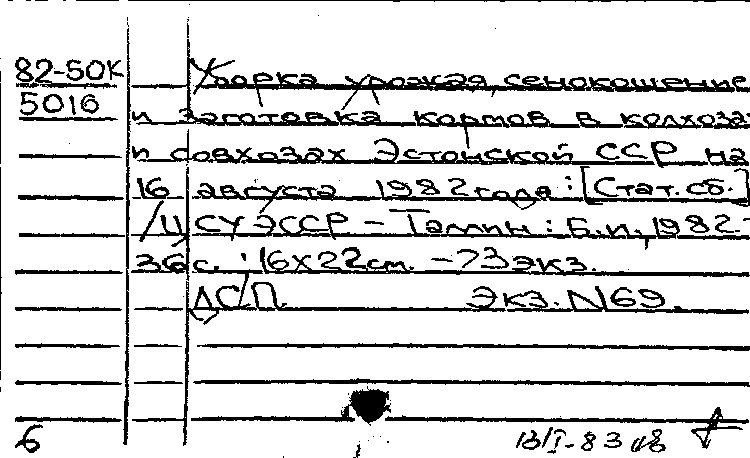 82-50К
5016
Уборка урожая, сенокошение
и заготовка кормов в колхозах
и совхозах Эстонской ССР на
16 августа 1982 года : [Стат. сб.]
/ЦСУ ЭССР - Таллин : Б.и., 1982.-
36 с. ; 16х22 cm. - 73 экз.
ДСП. Экз. N69.
6 13/I-83